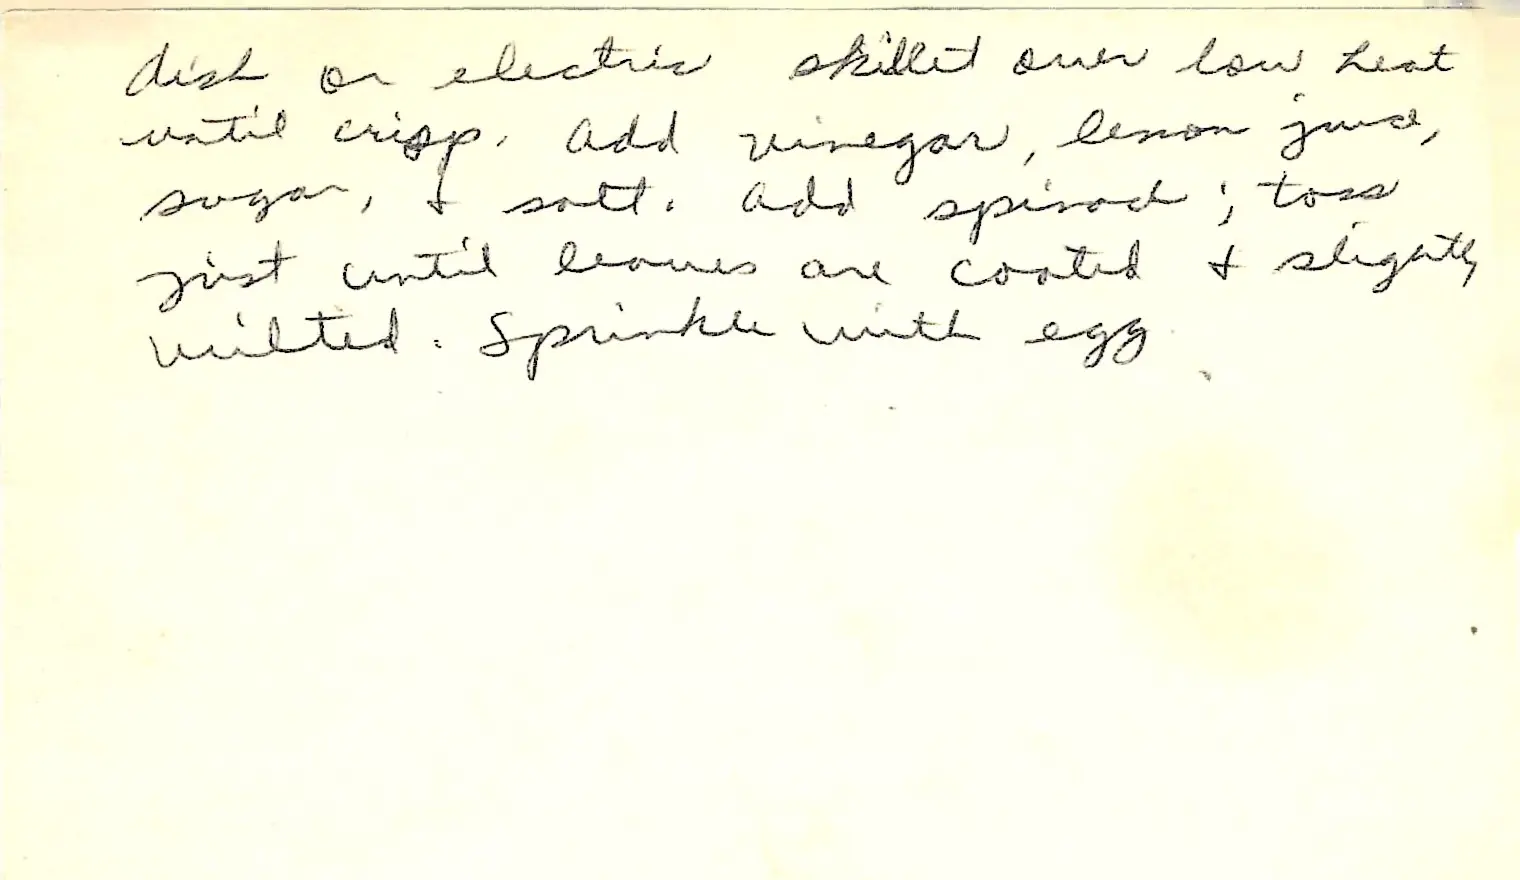 dish or electric skillet over low heat
until crisp. Add vinegar, lemon juice,
sugar, & salt. Add spinach; toss
just until leaves are coated & slightly
wilted. Sprinkle with egg